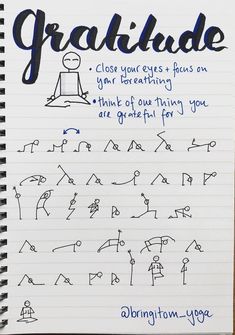 gratitude
• Close your eyes + focus on
your breathing
• think of one thing you
are grateful for
@bringitom_yoga